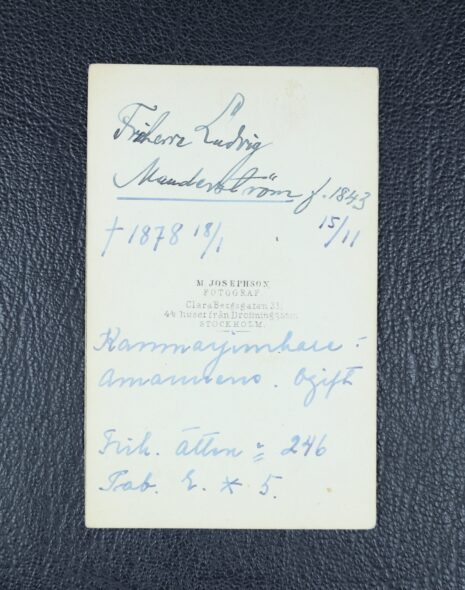 Friherre Ludvig
Manderström f. 1843
15/11
† 1878 18/1
M. JOSEPHSON
FOTOGRAF
Clara Bergsgatan 33,
4de huset från Drottninggatan
STOCKHOLM.
Kammarjunkare:
amanuens. Ogift
Frih. ätten 246
Tab. 2. * 5.